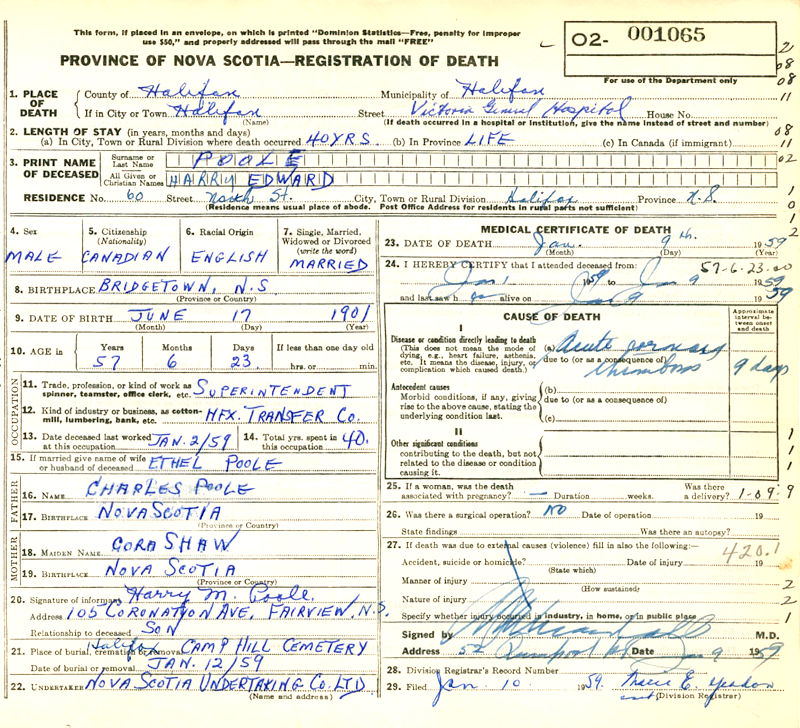 This form, if placed in an envelope, on which is printed "Dominion Statistics—Free, penalty for improper
use $50," and properly addressed will pass through the mail "FREE"
02- 001065
PROVINCE OF NOVA SCOTIA—REGISTRATION OF DEATH
For use of the Department only
1. PLACE OF DEATH County of Halifax Municipality of Halifax
If in City or Town Halifax Street Victoria General Hospital House No.
(Name) (If death occurred in a hospital or institution, give the name instead of street and number)
2. LENGTH OF STAY (in years, months and days)
(a) In City, Town or Rural Division where death occurred 40 YRS. (b) In Province LIFE (c) In Canada (if immigrant)
3. PRINT NAME OF DECEASED Surname or Last Name POOLE
All Given or Christian Names HARRY EDWARD
RESIDENCE No. 60 Street North St. City, Town or Rural Division Halifax Province N.S.
(Residence means usual place of abode. Post Office Address for residents in rural parts not sufficient)
4. Sex MALE
5. Citizenship (Nationality) CANADIAN
6. Racial Origin ENGLISH
7. Single, Married, Widowed or Divorced (write the word) MARRIED
8. BIRTHPLACE BRIDGETOWN, N.S.
(Province or Country)
9. DATE OF BIRTH JUNE 17 1901
(Month) (Day) (Year)
10. AGE in Years 57 Months 6 Days 23 If less than one day old
hrs. or min.
OCCUPATION
11. Trade, profession, or kind of work as spinner, teamster, office clerk, etc. SUPERINTENDENT
12. Kind of industry or business, as cotton-mill, lumbering, bank, etc. HFX. TRANSFER CO.
13. Date deceased last worked at this occupation JAN. 2/59 14. Total yrs. spent in this occupation 40.
15. If married give name of wife or husband of deceased ETHEL POOLE
FATHER
16. NAME CHARLES POOLE
17. BIRTHPLACE NOVA SCOTIA
(Province or Country)
MOTHER
18. MAIDEN NAME CORA SHAW
19. BIRTHPLACE NOVA SCOTIA
(Province or Country)
20. Signature of informant Harry M. Poole
Address 105 CORONATION AVE, FAIRVIEW, N.S.
Relationship to deceased SON
21. Place of burial, cremation or removal Halifax CAMP HILL CEMETERY
Date of burial or removal JAN. 12/59
22. UNDERTAKER NOVA SCOTIA UNDERTAKING CO. LTD
(Name and address)
MEDICAL CERTIFICATE OF DEATH
23. DATE OF DEATH Jan. 9th. 1959
(Month) (Day) (Year)
24. I HEREBY CERTIFY that I attended deceased from: 57-6-23-00
Jan 1 1959 to Jan 9 1959
and last saw h alive on Jan 9 1959
CAUSE OF DEATH
Approximate interval between onset and death
I
Disease or condition directly leading to death
(This does not mean the mode of dying, e.g., heart failure, asthenia, etc. It means the disease, injury, or complication which caused death.)
(a) Acute coronary
due to (or as a consequence of)
thrombosis 9 days
Antecedent causes
Morbid conditions, if any, giving rise to the above cause, stating the underlying condition last.
(b)
due to (or as a consequence of)
(c)
II
Other significant conditions
contributing to the death, but not related to the disease or condition causing it.
25. If a woman, was the death associated with pregnancy? — Duration weeks. Was there a delivery? 1-09-9
26. Was there a surgical operation? NO Date of operation 19
State findings Was there an autopsy?
27. If death was due to external causes (violence) fill in also the following:— 420.1
Accident, suicide or homicide? Date of injury 19
(State which)
Manner of injury
(How sustained)
Nature of injury
Specify whether injury occurred in industry, in home, or in public place
Signed by M.D.
Address Date Jan 9 1959
28. Division Registrar's Record Number
29. Filed Jan 10 1959.
(Division Registrar)